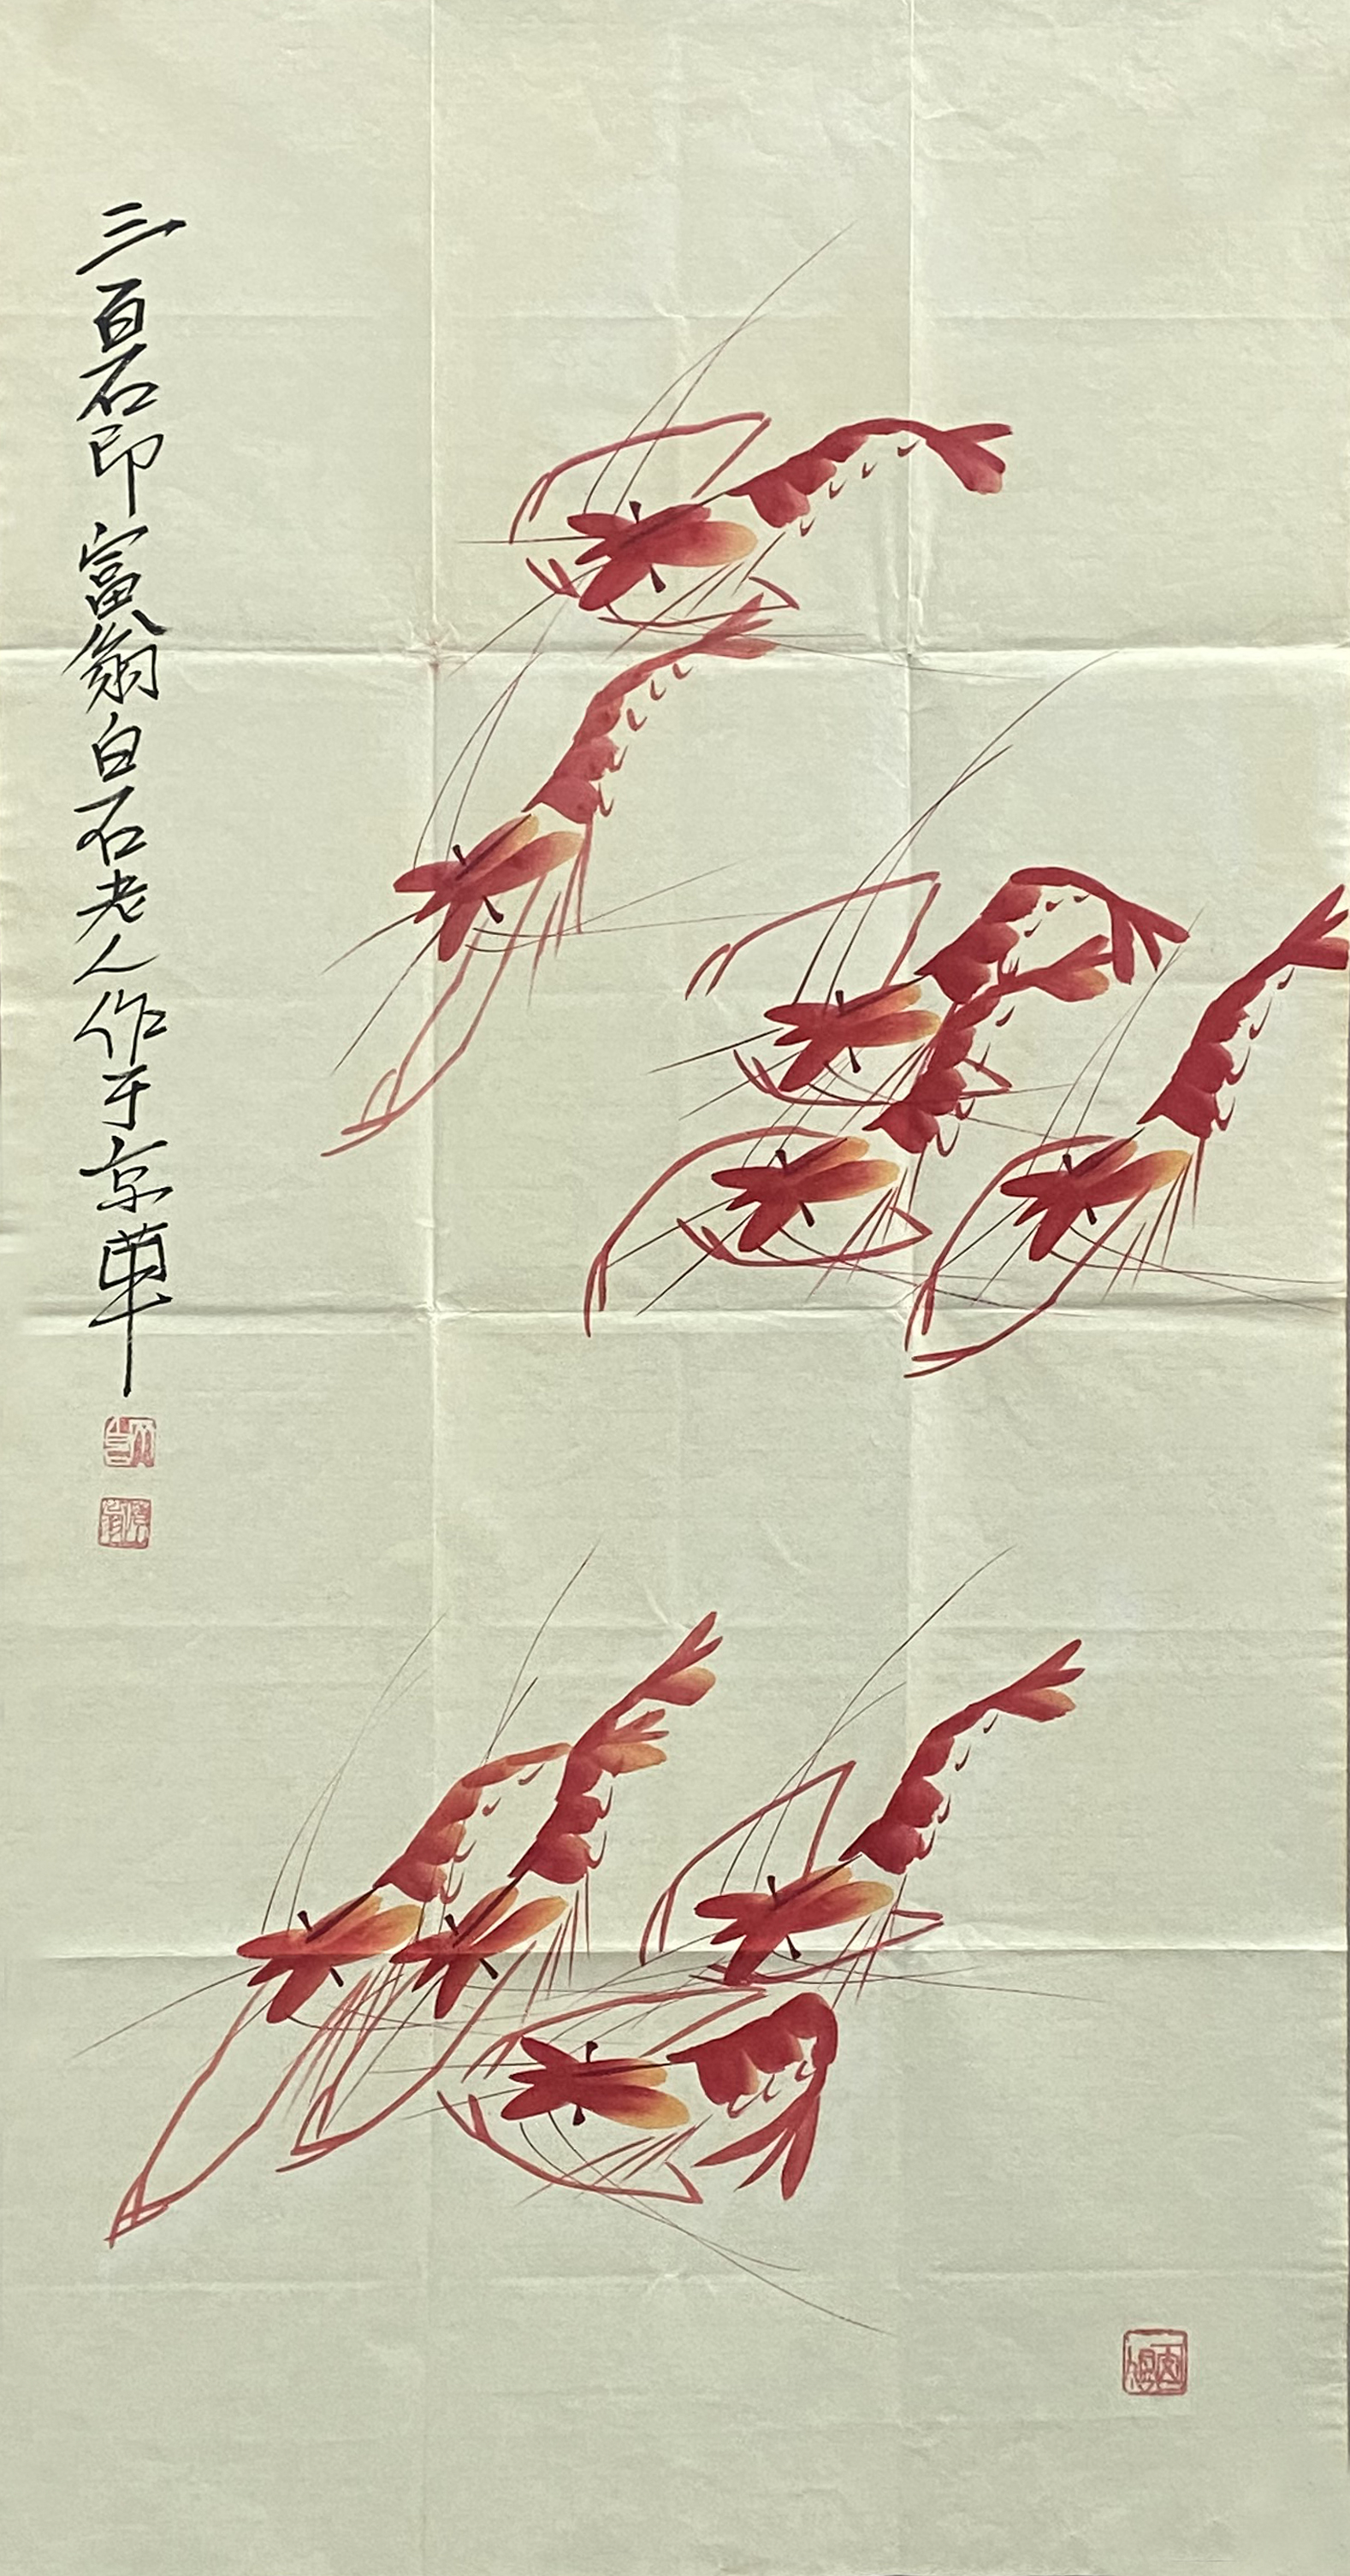 三百石印富翁白石老人作于京華